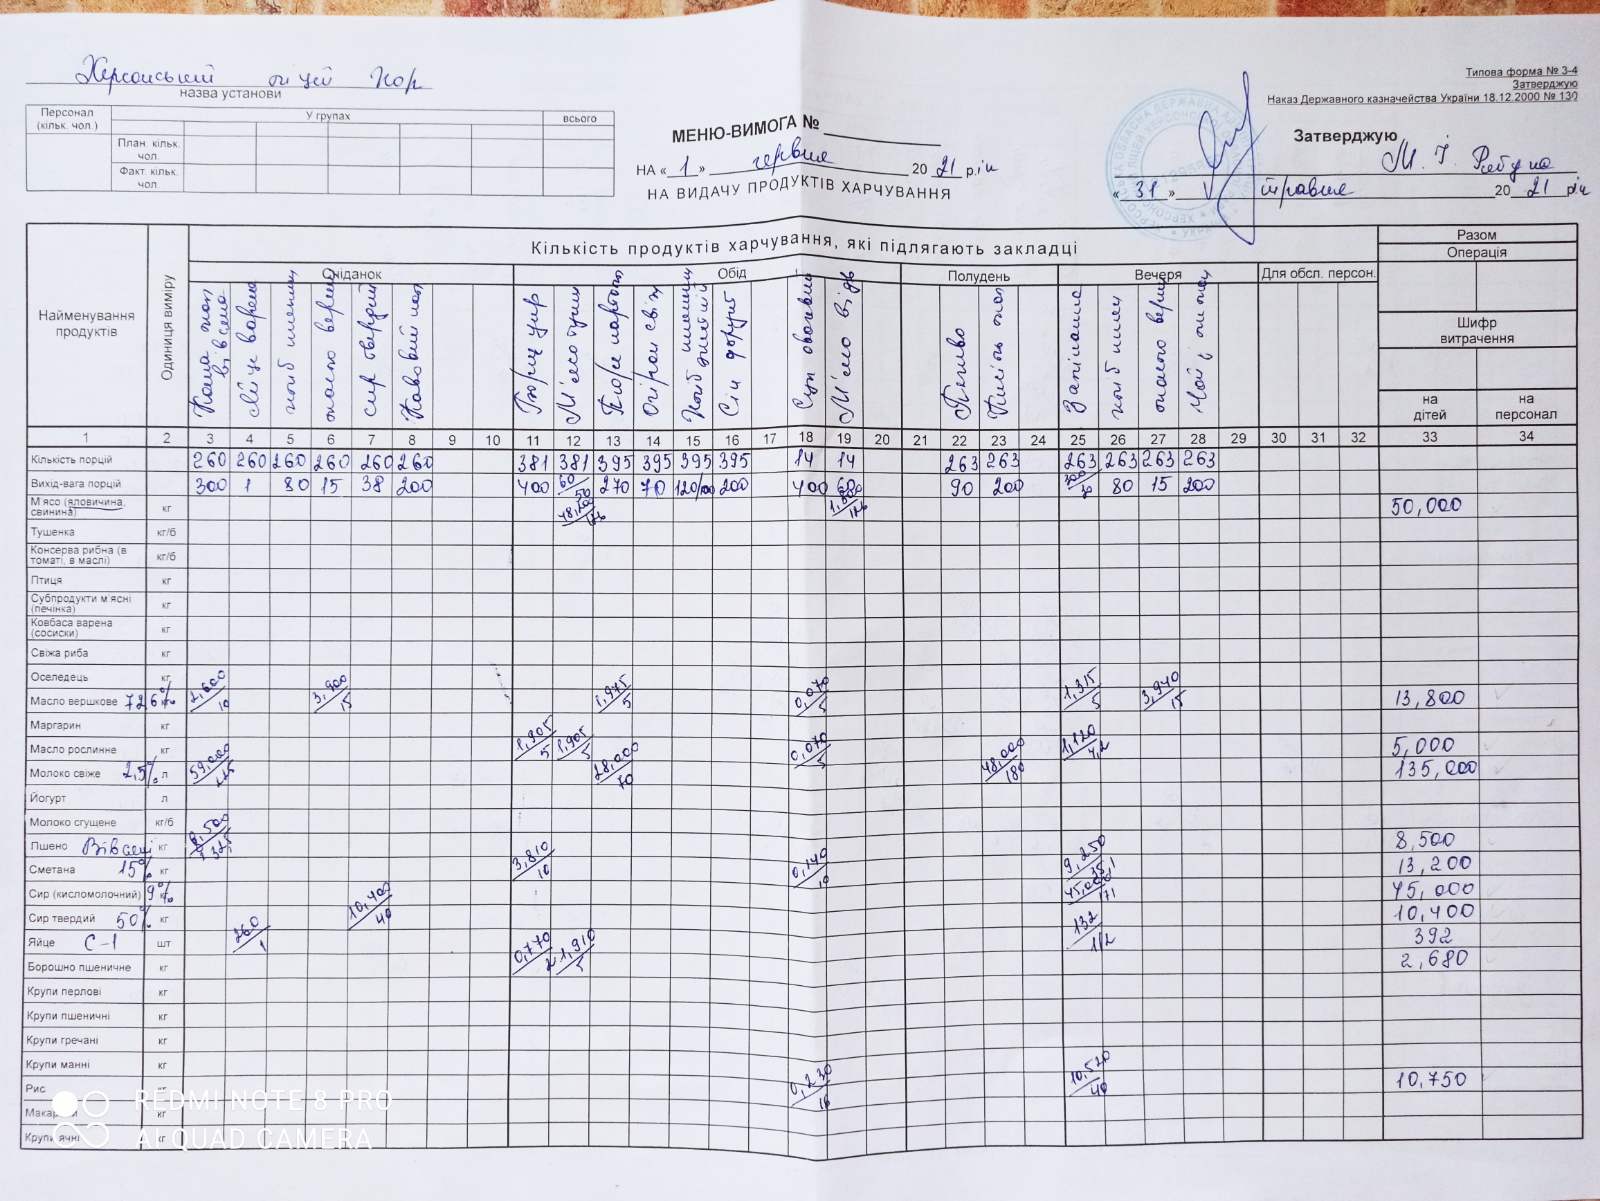 Херсонський ліцей
назва установи
Типова форма № 3-4
Затверджую
Наказ Державного казначейства України 18.12.2000 № 130
Персонал (кільк. чол.)
У групах
всього
План. кільк. чол.
Факт. кільк. чол.
МЕНЮ-ВИМОГА №
НА « 1 » червня 20 21 рік
НА ВИДАЧУ ПРОДУКТІВ ХАРЧУВАННЯ
Затверджую
М. І.
« 31 » травня 20 21 рік
Найменування продуктів
Одиниця виміру
Кількість продуктів харчування, які підлягають закладці
Разом
Операція
Сніданок Обід Полудень Вечеря Для обсл. персон.
Шифр витрачення
на дітей
на персонал
Яйце варене
хліб пшенич
масло верш
сир твердий
М'ясо туш
Пюре картоп
Огірок свіж
Суп овочевий
М'ясо від
Печиво
Запіканка
хліб пшен
масло верш
1 2 3 4 5 6 7 8 9 10 11 12 13 14 15 16 17 18 19 20 21 22 23 24 25 26 27 28 29 30 31 32 33 34
Кількість порцій 260 260 260 260 260 260 381 381 395 395 395 395 14 14 263 263 263 263 263 263
Вихід-вага порцій 300 1 80 15 38 200 400 60/50 270 70 120/100 200 400 60 90 200 300/30 80 15 200
М'ясо (яловичина, свинина) кг 48,200/126 50,000
Тушенка кг/б
Консерва рибна (в томаті, в маслі) кг/б
Птиця кг
Субпродукти м'ясні (печінка) кг
Ковбаса варена (сосиски) кг
Свіжа риба кг
Оселедець кг
Масло вершкове 72,6% кг 2,600/10 3,900/15 1,975/5 0,070/5 1,315/5 3,940/15 13,800
Маргарин кг
Масло рослинне кг 1,905/5 1,905/5 0,070/5 1,120/4,2 5,000
Молоко свіже 2,5% л 59,000/225 28,000/70 48,000/180 135,000
Йогурт л
Молоко сгущене кг/б
Пшено Вівсяні кг 8,500 8,500
Сметана 15% кг 3,810/10 0,140/10 9,250/35,1 13,200
Сир (кисломолочний) 9% кг 45,000/171 45,000
Сир твердий 50% кг 10,400/40 10,400
Яйце С-1 шт 260/1 132/1/2 392
Борошно пшеничне кг 0,770/2 1,910/5 2,680
Крупи перлові кг
Крупи пшеничні кг
Крупи гречані кг
Крупи манні кг
Рис кг 0,230/16 10,520/40 10,750
Макарони кг
Крупи ячні кг
REDMI NOTE 8 PRO
AI QUAD CAMERA